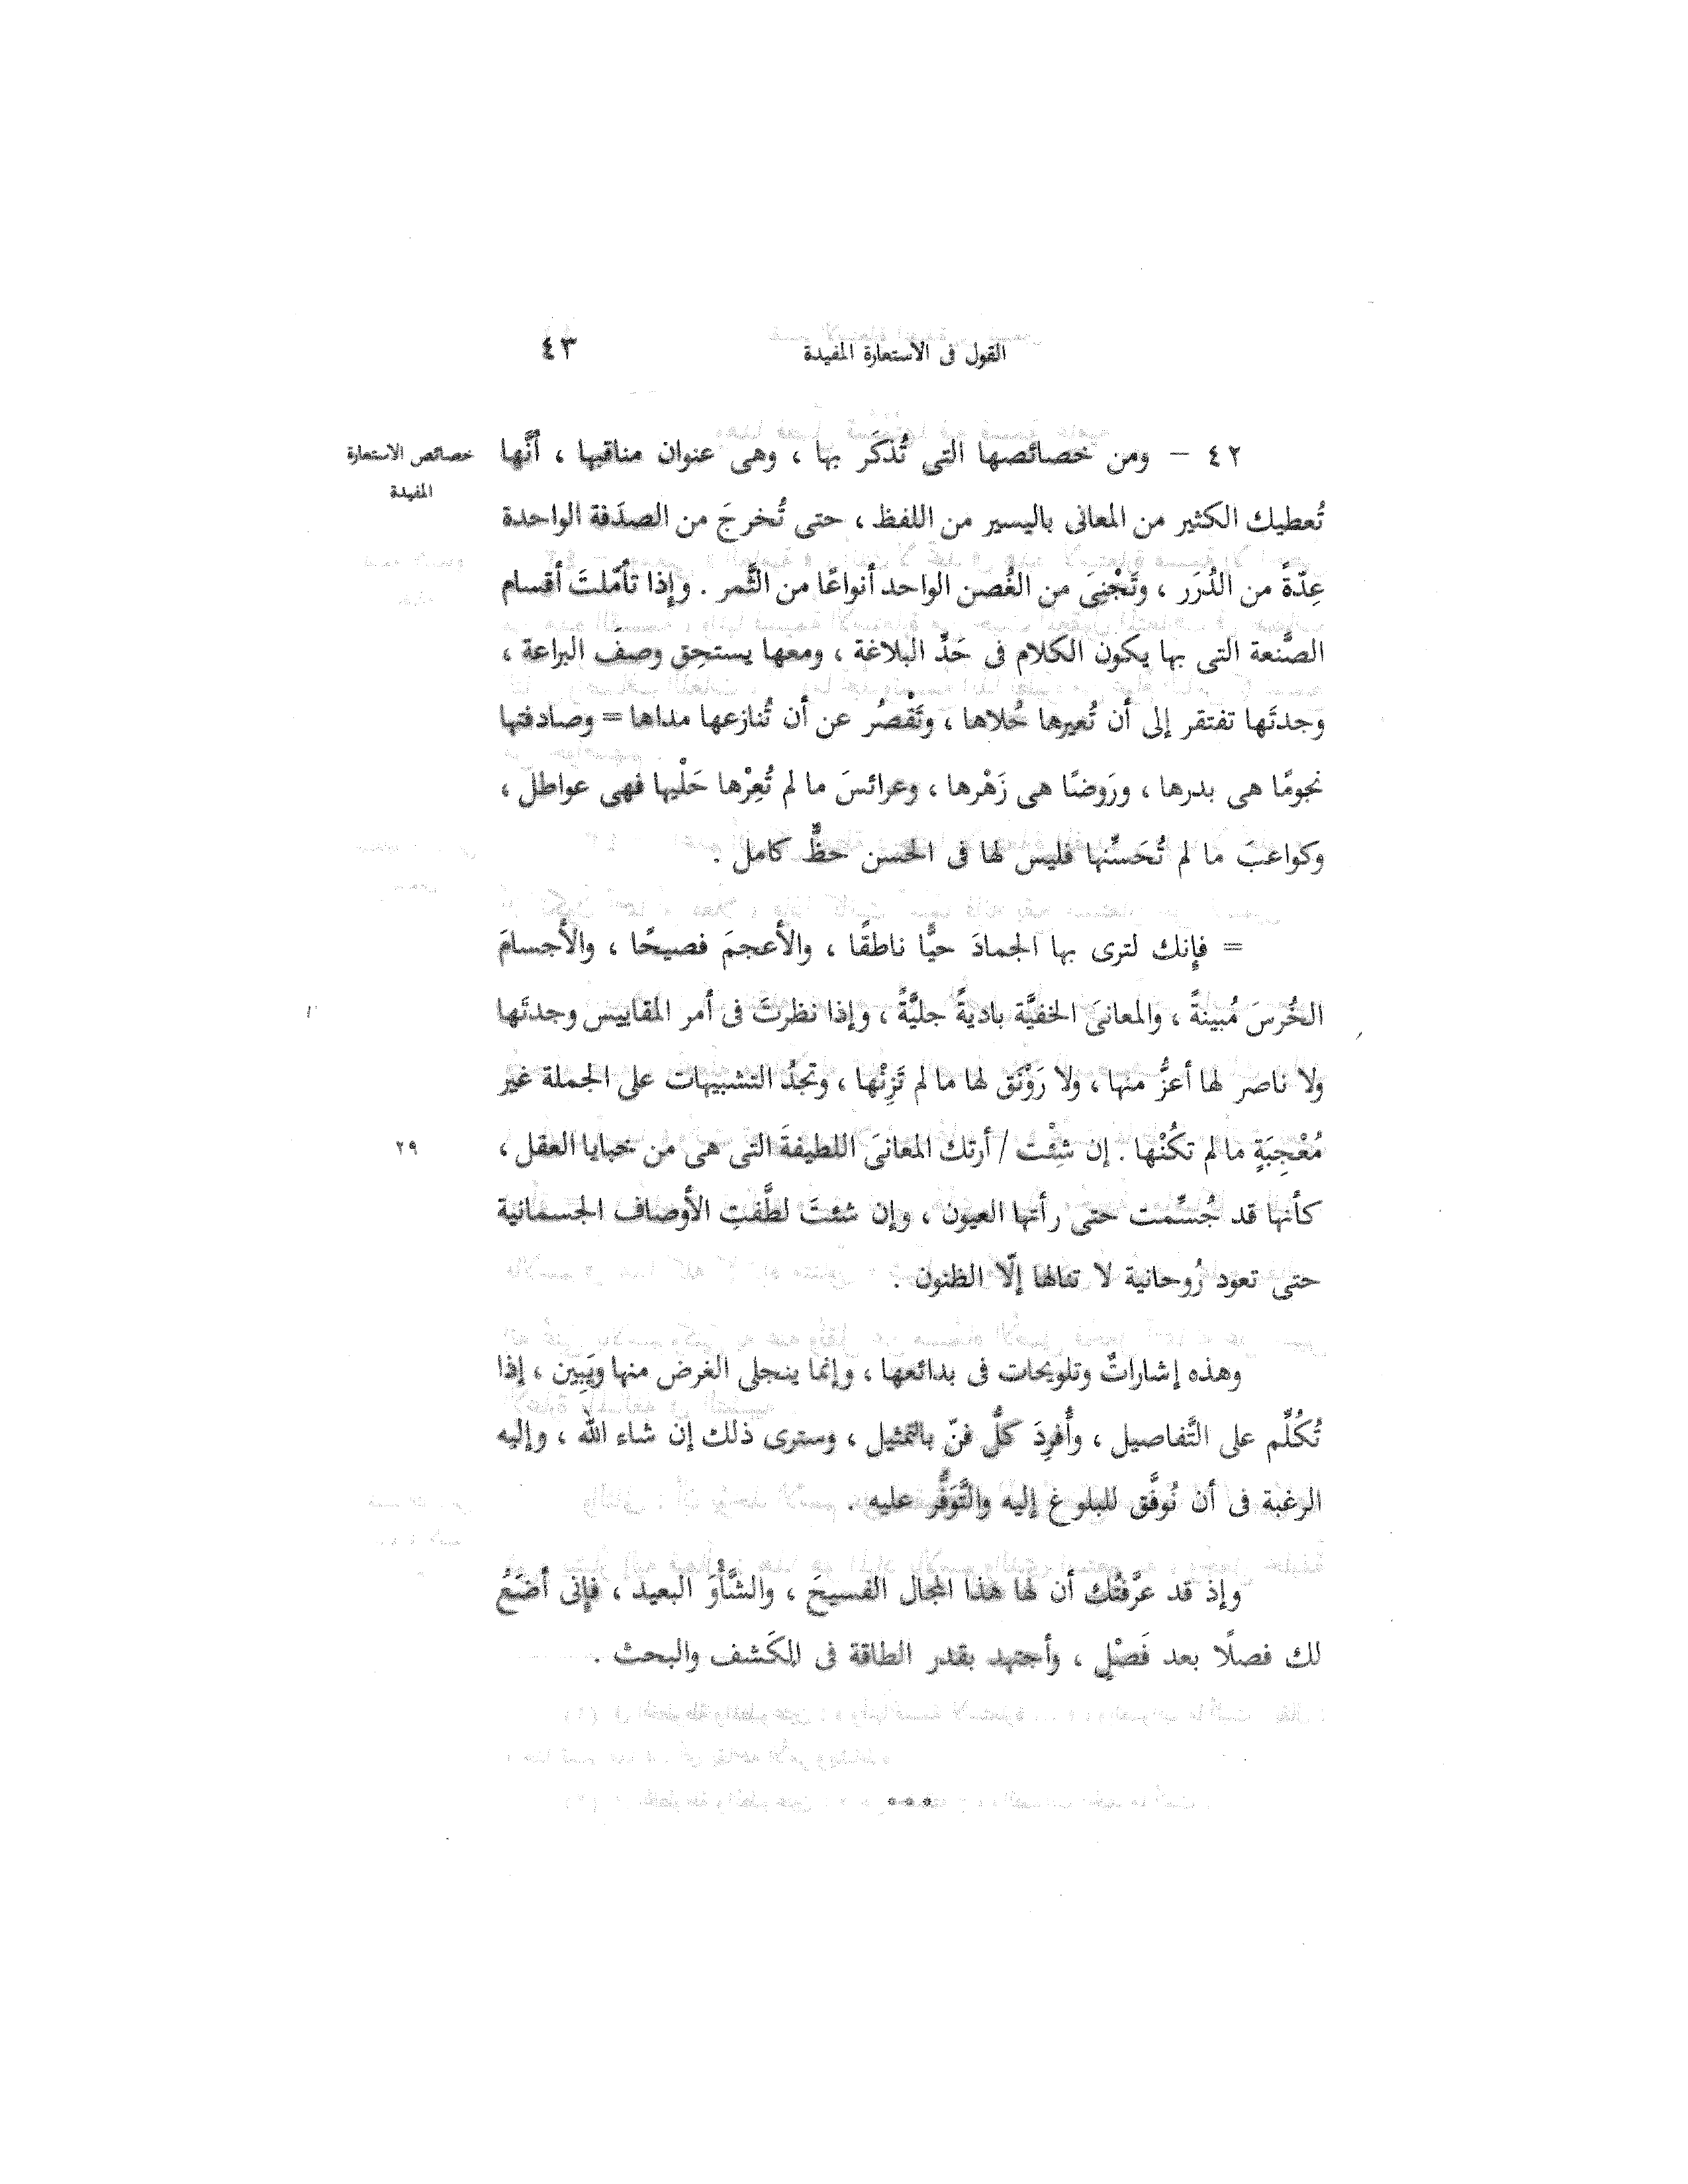 القول فى الاستعارة المفيدة ٤٣
٤٢ – ومن خصائصها التى تُذكَر بها ، وهى عنوان مناقبها ، أنَّها
خصائص الاستعارة
المفيدة
تُعطيك الكثير من المعانى باليسير من اللفظ ، حتى تُخرجَ من الصدَفة الواحدة
عِدّةً من الدُرَر ، وتَجْنِىَ من الغُصن الواحد أنواعًا من الثَّمر . وإذا تأمّلتَ أقسام
الصَّنعة التى بها يكون الكلام فى حَدِّ البلاغة ، ومعها يستحِق وصفَ البراعة ،
وجدتَها تفتقر إلى أن تُعيرها حُلاها ، وتَقْصُر عن أن تُنازعها مداها = وصادفتها
نجومًا هى بدرها ، ورَوضًا هى زَهْرها ، وعرائسَ ما لم تُعِرْها حَلْيها فهى عواطل ،
وكواعبَ ما لم تُحَسِّنها فليس لها فى الحسن حظٌّ كامل .
= فإنك لترى بها الجمادَ حيًّا ناطقًا ، والأعجمَ فصيحًا ، والأجسامَ
الخُرسَ مُبينةً ، والمعانىَ الخفيَّة باديةً جليَّةً ، وإذا نظرتَ فى أمر المقاييس وجدتَها
ولا ناصر لها أعزُّ منها ، ولا رَوْنَق لها ما لم تَزِنْها ، وتجدُ التشبيهات على الجملة غير
مُعْجِبَةٍ ما لم تكُنْها . إن شِئْت / أرتك المعانىَ اللطيفةَ التى هى من خبايا العقل ،
٢٩
كأنها قد جُسِّمت حتى رأتها العيون ، وإن شئتَ لطَّفتِ الأوصاف الجسمانية
حتى تعود رُوحانية لا تنالها إلّا الظنون .
وهذه إشاراتٌ وتلويحات فى بدائعها ، وإنما ينجلى الغرض منها ويَبِين ، إذا
تُكُلِّم على التَّفاصيل ، وأُفرِدَ كلُّ فنّ بالتمثيل ، وسترى ذلك إن شاء الله ، وإليه
الرغبة فى أن نُوفَّق للبلوغ إليه والتَّوَفُّر عليه .
وإذ قد عرَّفتُك أن لها هذا المجال الفسيحَ ، والشَّأوَ البعيد ، فإنى أضَعُ
لك فصلًا بعد فَصْلٍ ، وأجتهد بقدر الطاقة فى الكَشف والبحث .